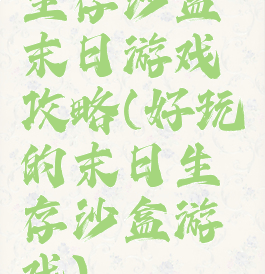 生存沙盒
末日游戏
攻略(好玩
的末日生
存沙盒游
戏)